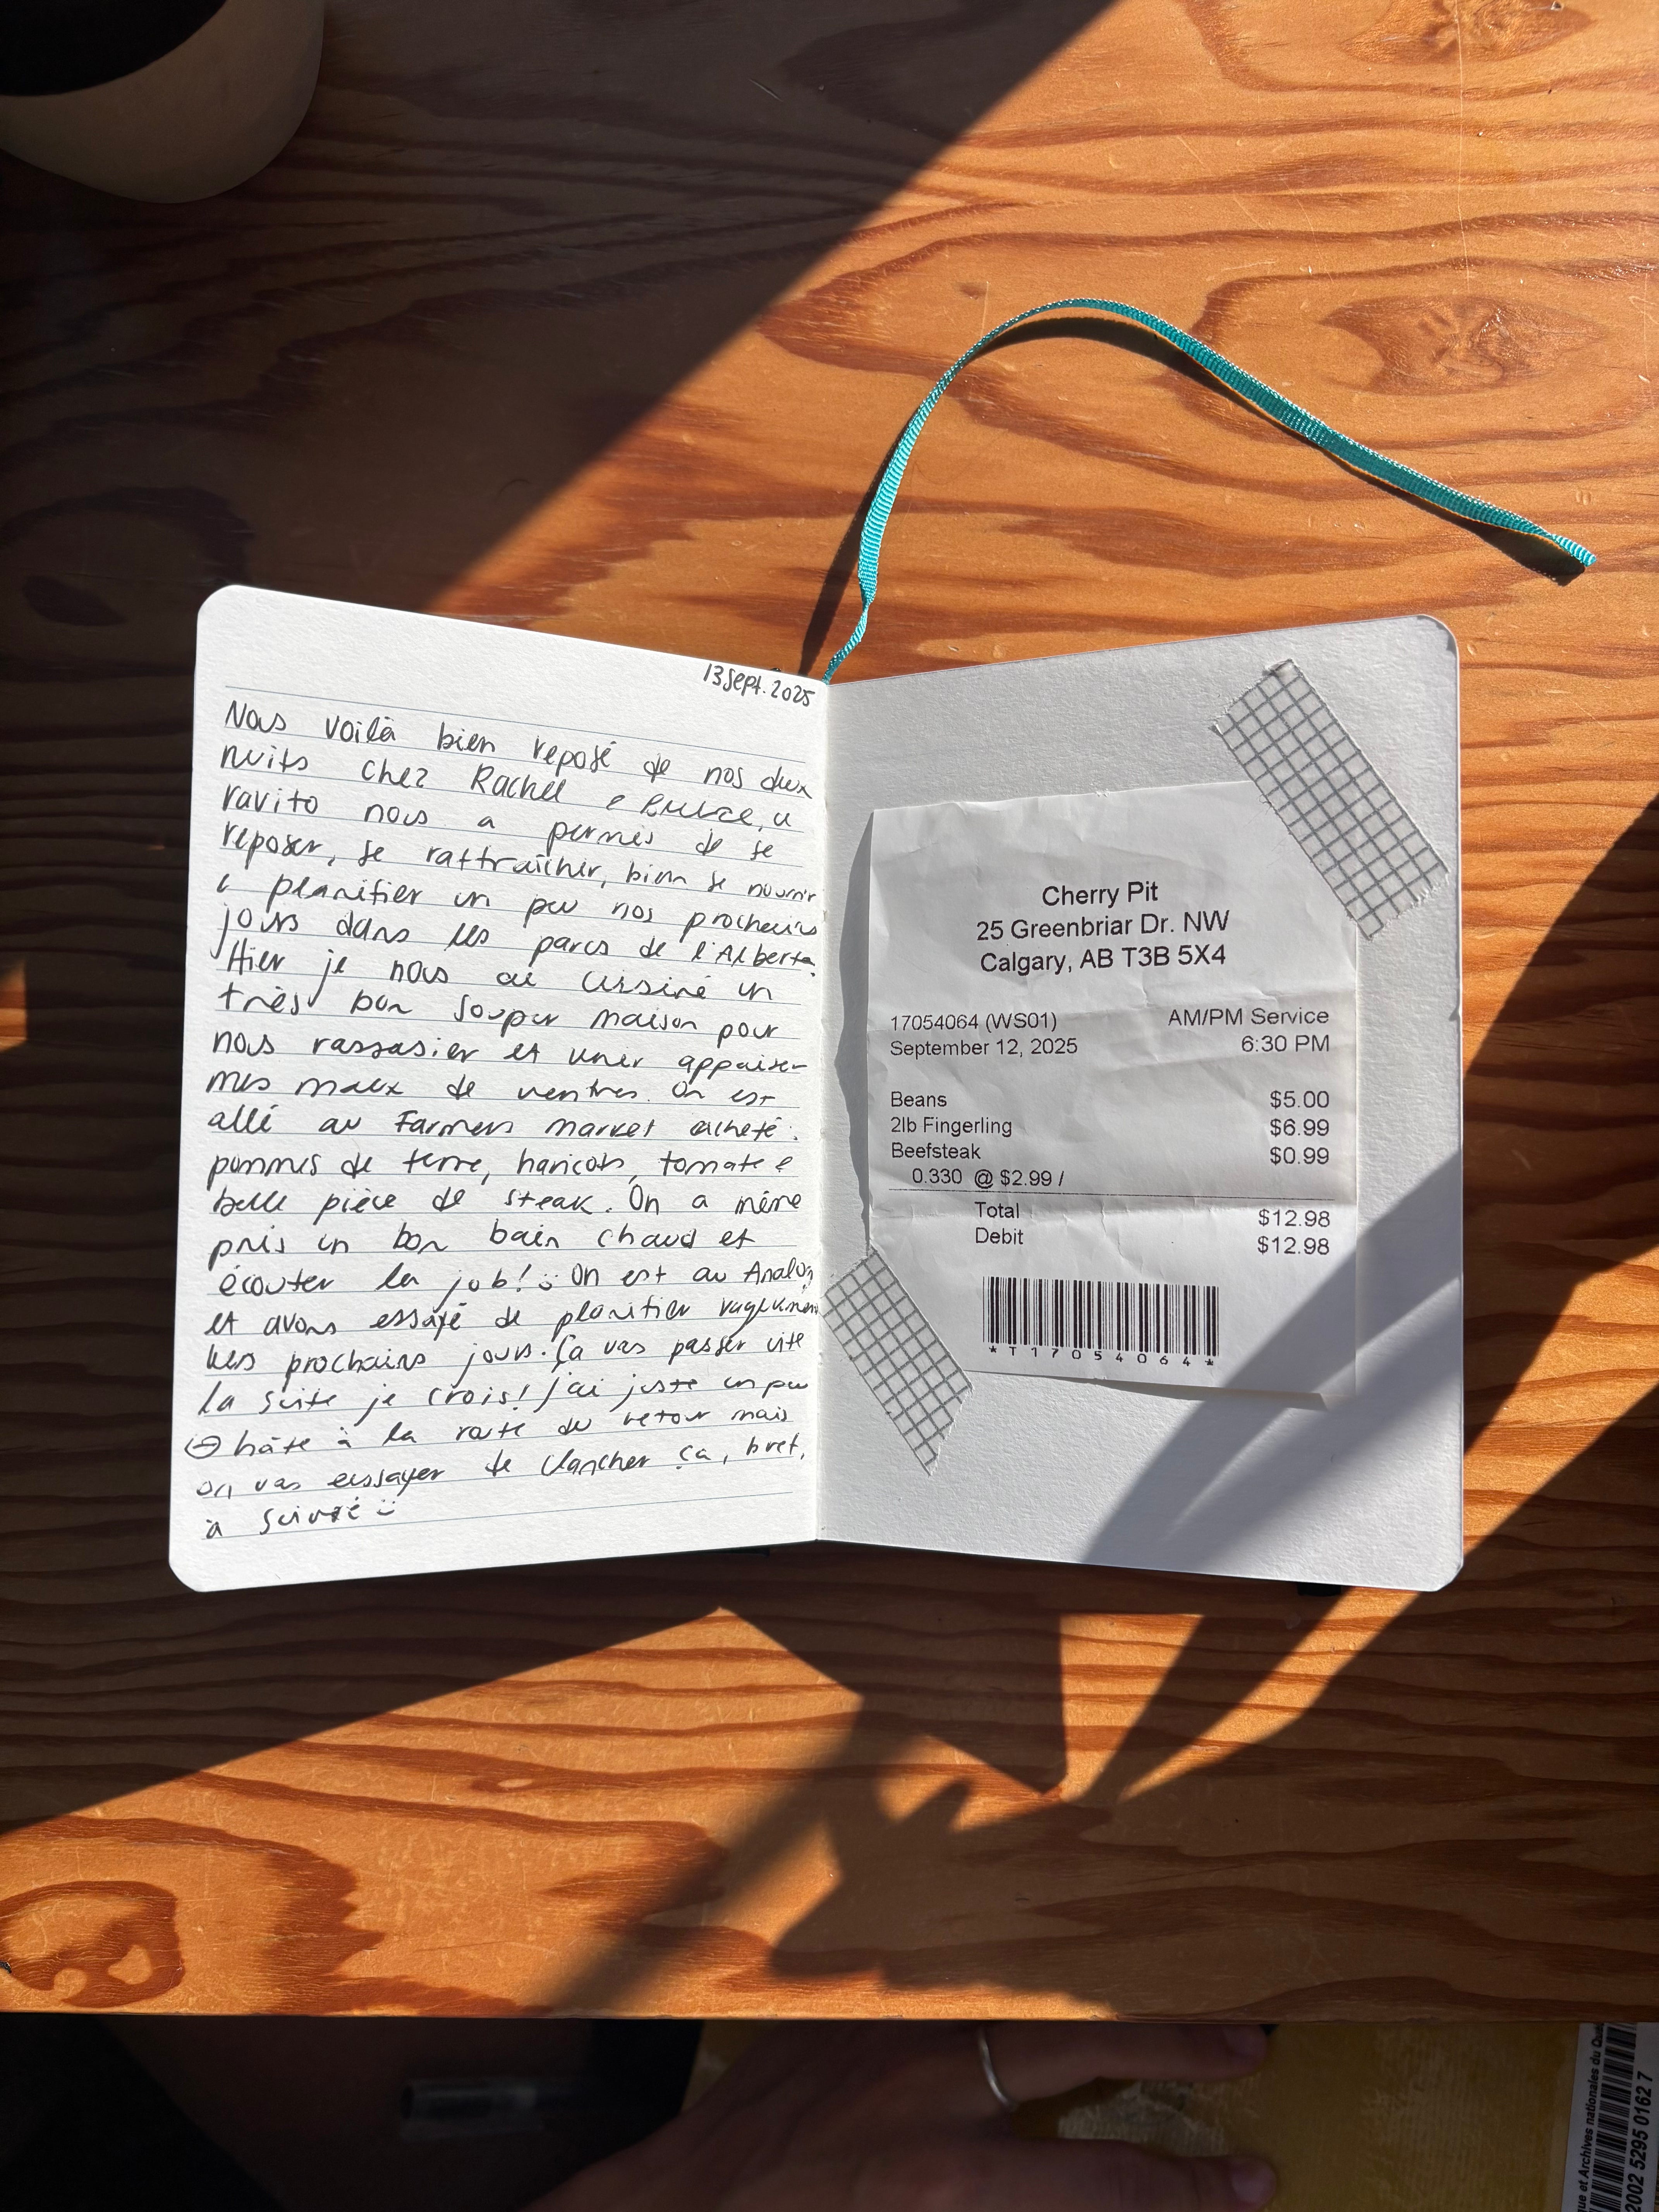 13 sept. 2025
Nous voilà bien reposé de nos deux
nuits chez Rachel e Bruce, ce
ravito nous a permis de se
reposer, se raffraîchir, bien se nourrir
e planifier un peu nos prochains
jours dans les parcs de l'Alberta.
Hier je nous ai cuisiné un
très bon souper maison pour
nous rassasier et venir appaiser
mes maux de ventres. On est
allé au Farmers market acheté:
pommes de terre, haricots, tomate e
belle pièce de steak. On a même
pris un bon bain chaud et
écouter la job! On est au Analog
et avons essayé de planifier vaguement
les prochains jours. Ça vas passer vite
la suite je crois! j'ai juste un peu
hâte à la route du retour mais
on vas essayer de clancher ça, bref,
à suivre
Cherry Pit
25 Greenbriar Dr. NW
Calgary, AB T3B 5X4
17054064 (WS01) AM/PM Service
September 12, 2025 6:30 PM
Beans $5.00
2lb Fingerling $6.99
Beefsteak $0.99
0.330 @ $2.99 /
Total $12.98
Debit $12.98
*T17054064*
que et Archives nationales du Qué
2002 5295 0162 7